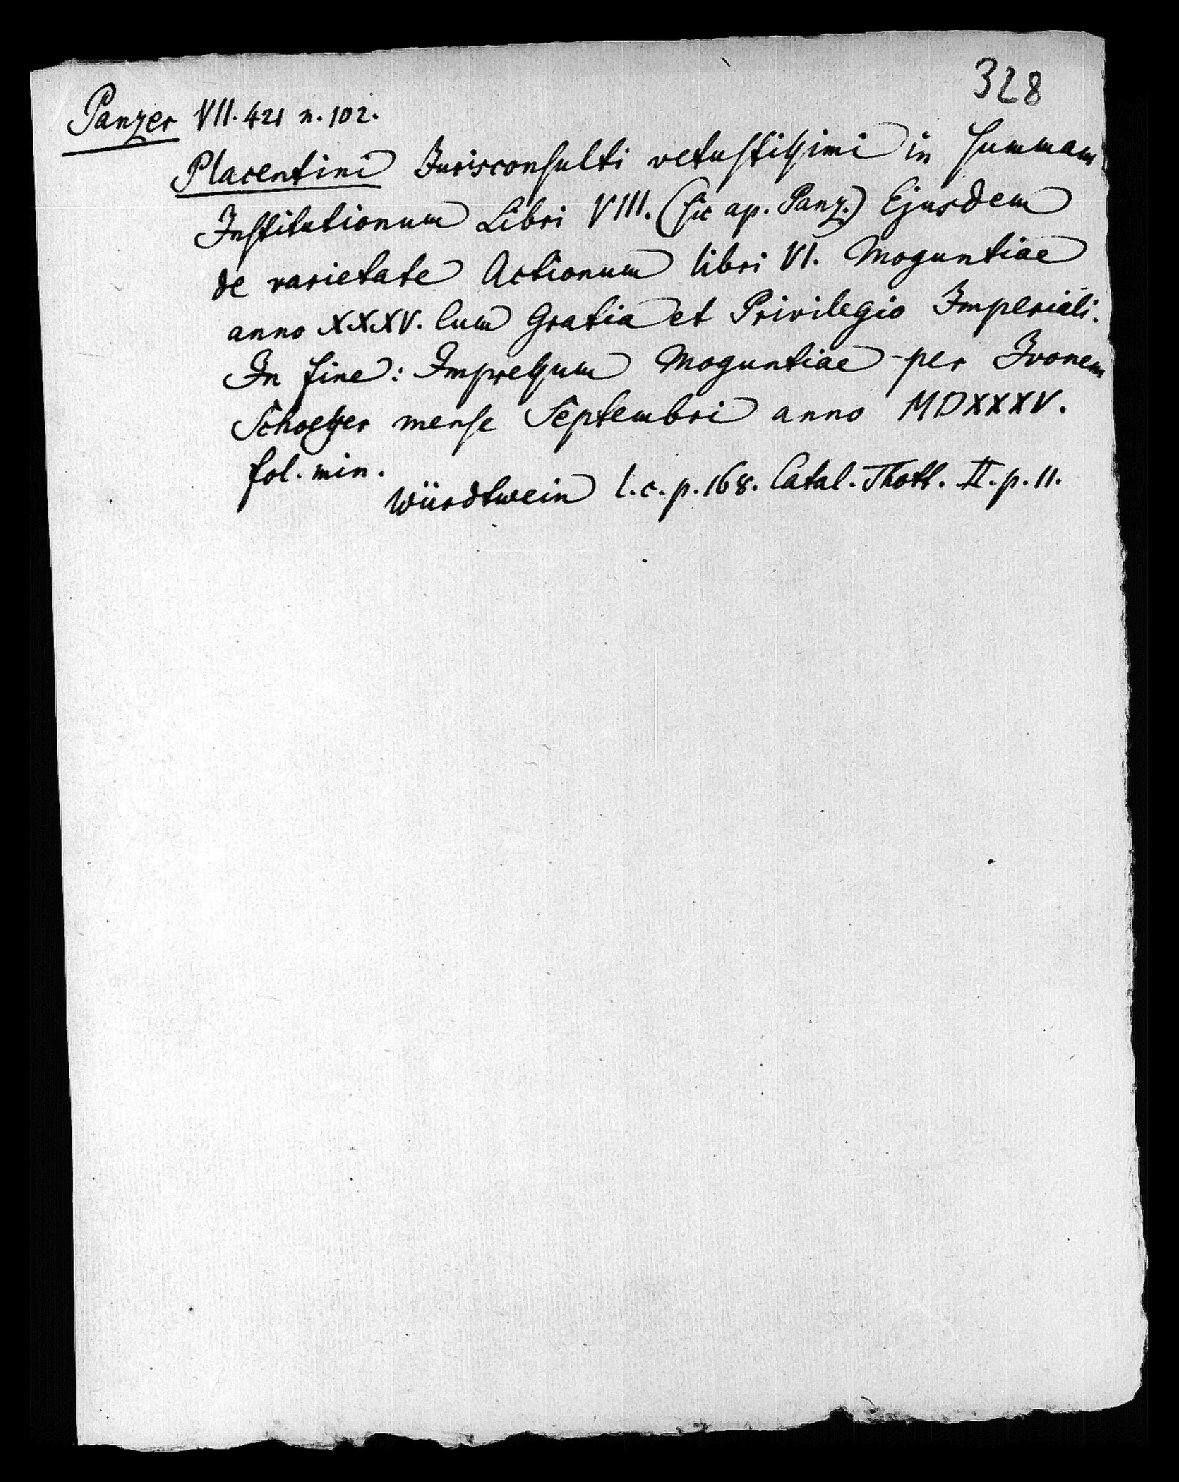 328
Panzer VII. 421 n. 102.
Placentini Jurisconsulti vetustissimi in summam
Institutionum Libri VIII. (sic ap. Panz.) Ejusdem
de varietate Actionum libri VI. Moguntiae
anno XXXV. Cum Gratia et Privilegio Imperiali.
In fine: Impressum Moguntiae per Ivonem
Schoeffer mense Septembri anno MDXXXV.
fol. min.
Würdtwein l. c. p. 168. Catal. Thott. II. p. 11.